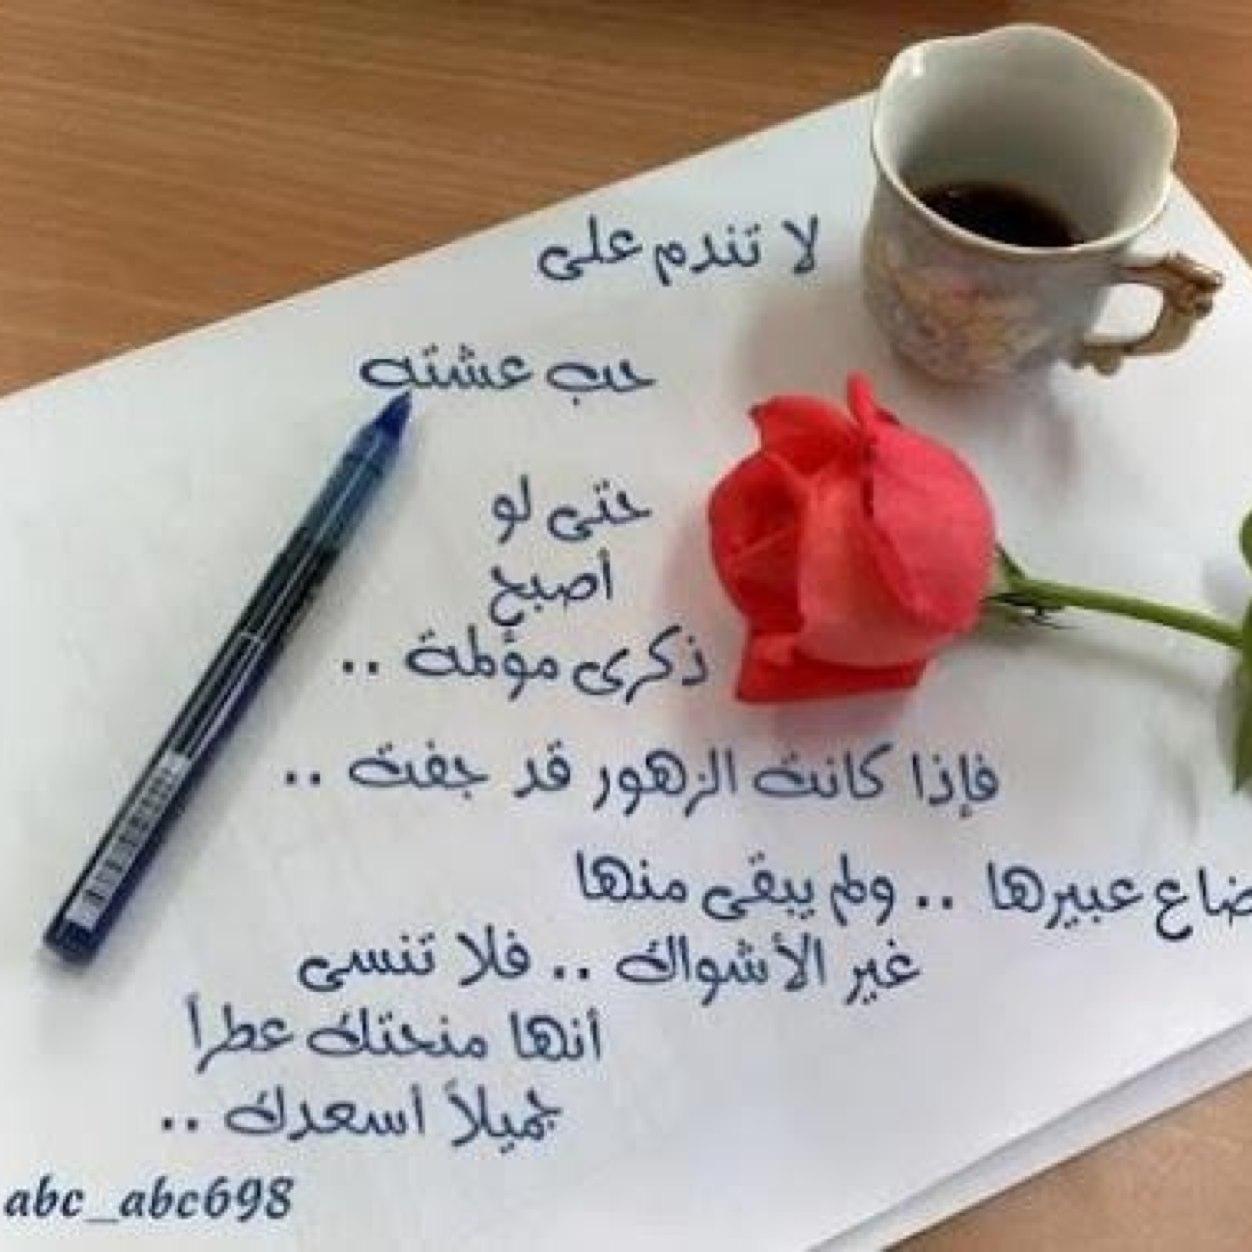 لا تندم على
حب عشته
حتى لو
أصبح
ذكرى مؤلمة ..
فإذا كانت الزهور قد جفت ..
ضاع عبيرها .. ولم يبقى منها
غير الأشواك .. فلا تنسى
أنها منحتك عطرأ
جميلاً أسعدك ..
abc_abc698